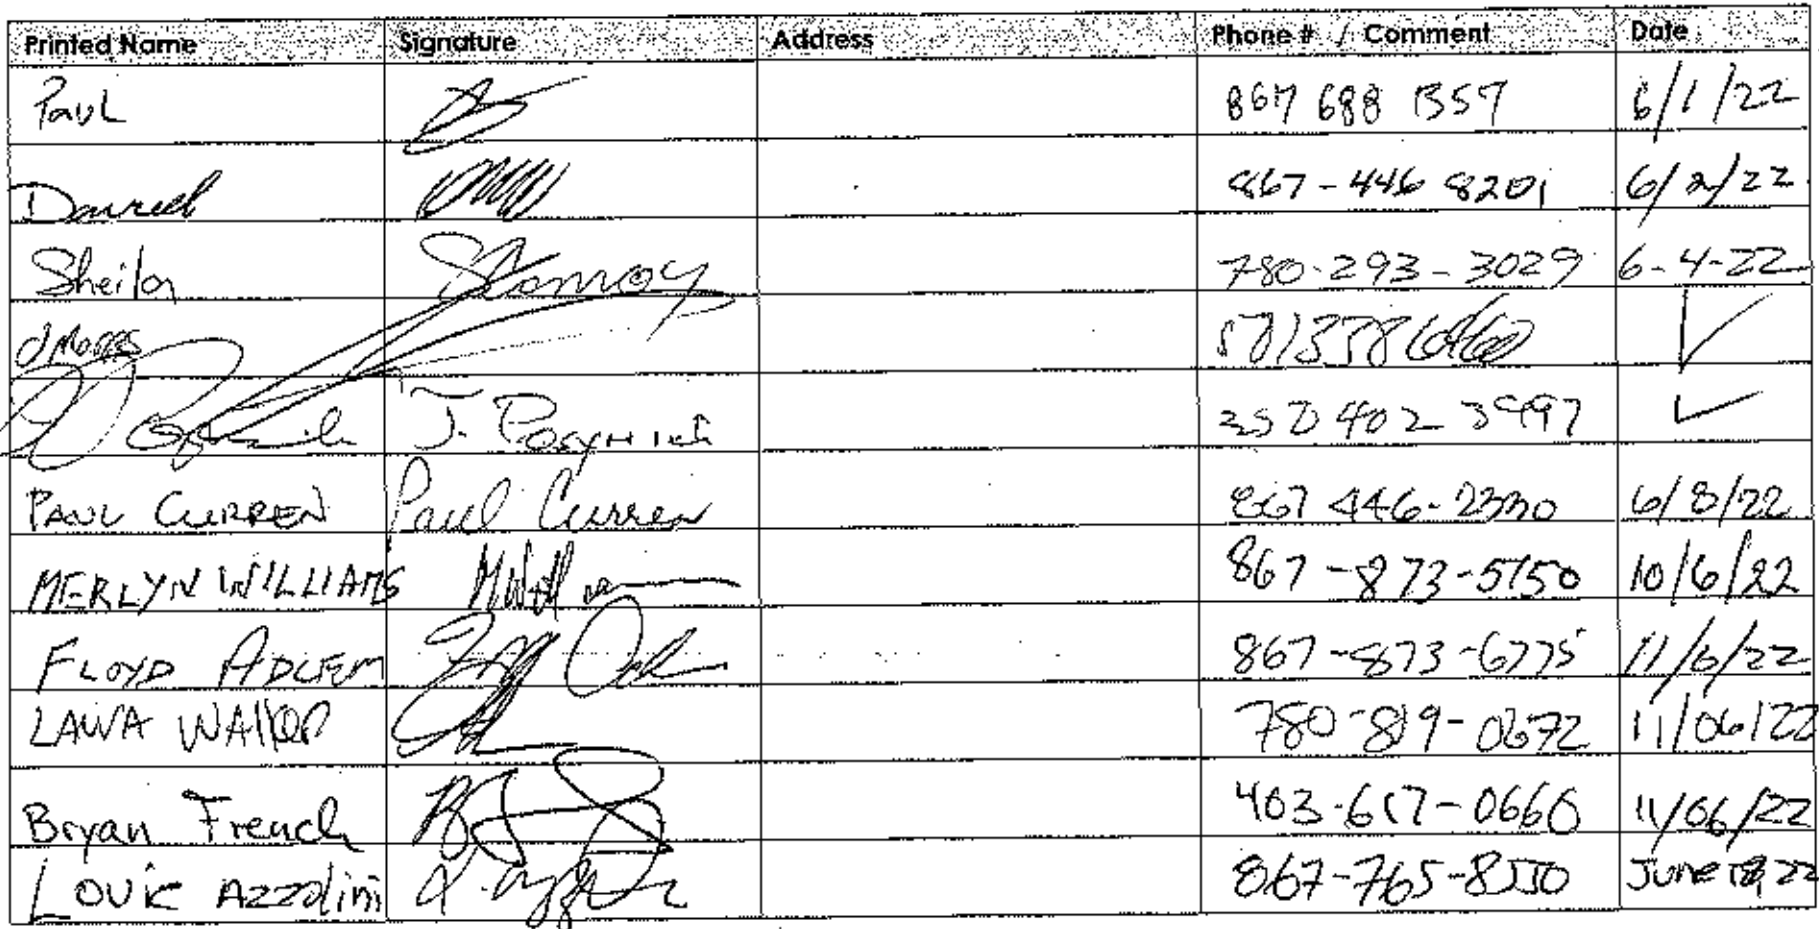 Printed Name Signature Address Phone # / Comment Date
Paul 867 688 1357 6/1/22
867-446 8201 6/2/22
Sheila 780-293-3029 6-4-22
J. Posynick 402
PAUL CURREN Paul Curren 867 446- 6/8/22
MERLYN WILLIAMS 867-873-5150 10/6/22
FLOYD ADLEM 867-873-6775 11/6/22
780-819-0672 11/06/22
Bryan French 403-617-0660 11/06/22
Louie Azzolini 867-765- June 22